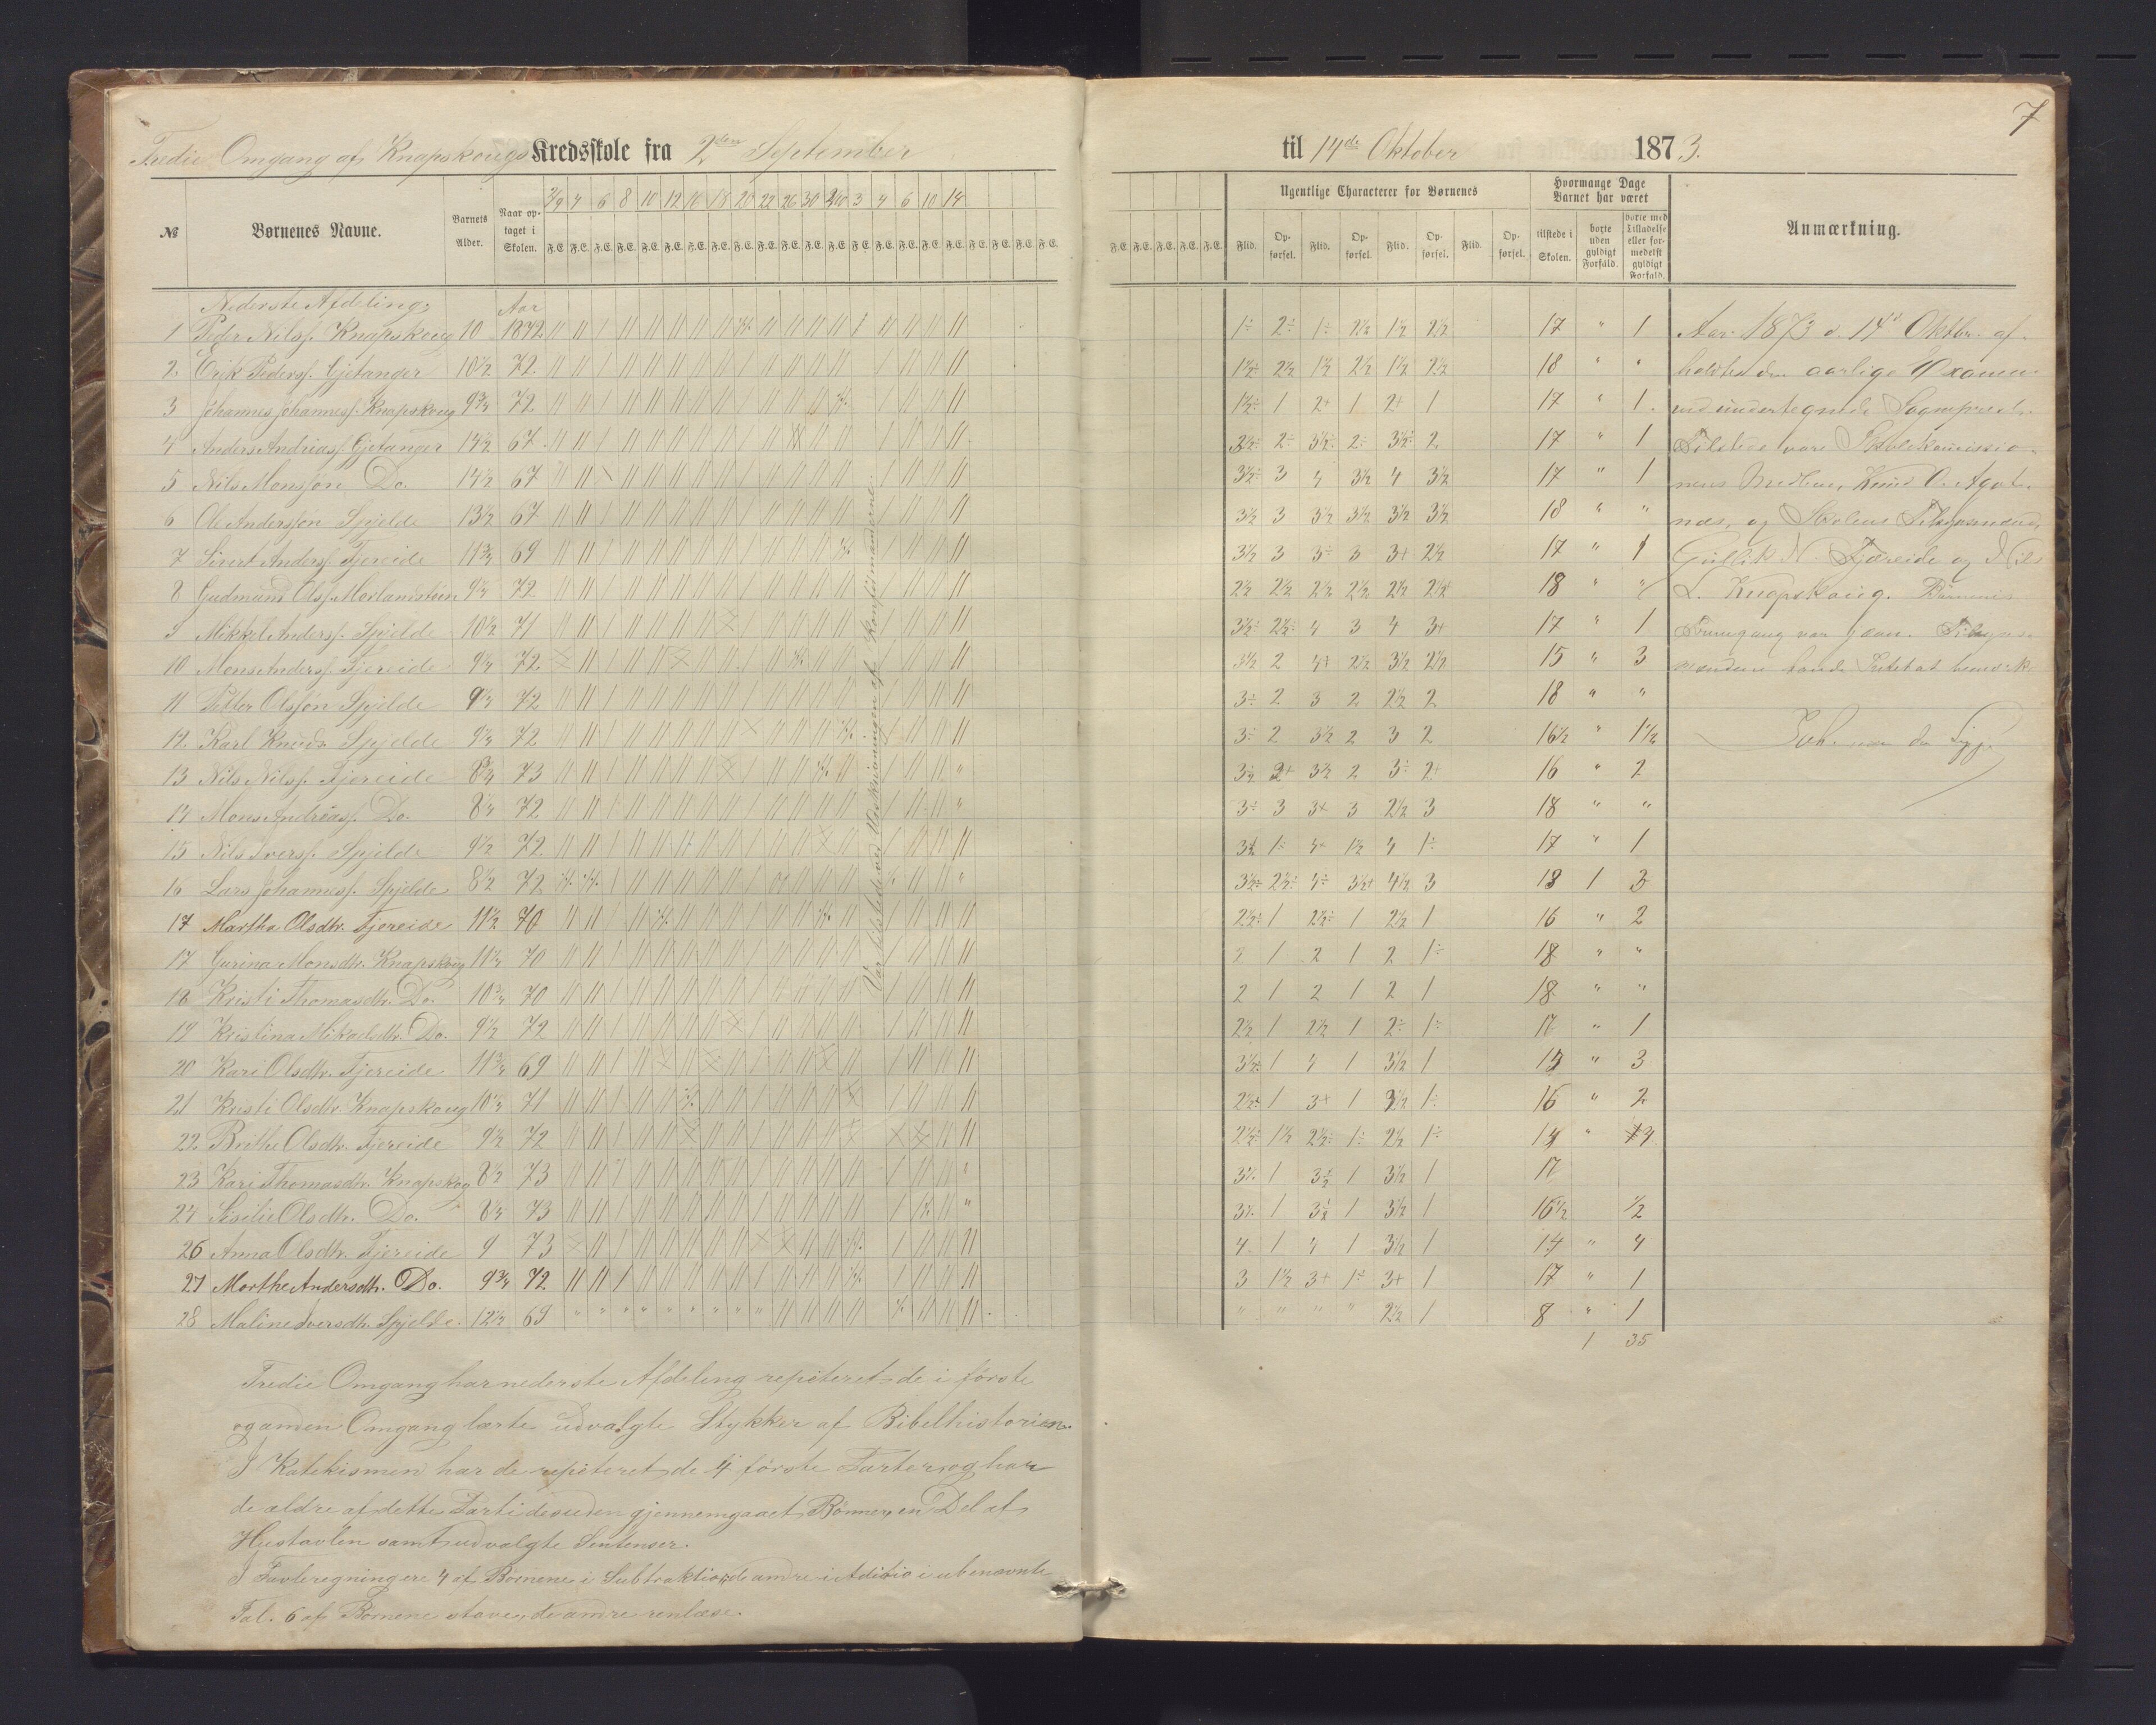 7
Tredie Omgang af Knapskougs Kredsskole fra 2den September til 14de Oktober 1873.
№ Børnenes Navne. Barnets Alder. Naar optaget i Skolen. 2/9 4 6 8 10 12 16 18 20 22 26 30 2/10 3 4 6 10 14
F.E. F.E. F.E. F.E. F.E. F.E. F.E. F.E. F.E. F.E. F.E. F.E. F.E. F.E. F.E. F.E. F.E. F.E. F.E. F.E. F.E.
F.E. F.E. F.E. F.E. F.E. Ugentlige Characterer for Børnenes Hvormange Dage Barnet har været Anmærkning.
Flid. Opførsel. Flid. Opførsel. Flid. Opførsel. Flid. Opførsel. tilstede i Skolen. borte uden gyldigt Forfald. borte med Tilladelse eller formedelst gyldigt Forfald.
Nederste Afdeling. Aar
1 Peder Nilss. Knapskoug 10 1872 1÷ 2÷ 1÷ 2½ 1½ 2½ 17 " 1
2. Erik Peders. Gjetanger 10½ 72. 1½÷ 2½ 1½ 2½ 1½ 2½ 18 " "
3 Johannes Johanness. Knapskoug 9¾ 72 1½÷ 1 2+ 1 2+ 1 17 " 1.
4 Anders Andreass. Gjetanger 14½ 67 2½÷ 2÷ 3½÷ 2÷ 3½÷ 2 17 " 1
5 Nils Monssøn Do. 14½ 67 3½÷ 3 4 3½ 4 3½ 17 " 1
6 Ole Anderssøn Spjelde 13½ 67 3½ 3 3½ 3½ 3½ 3½ 18 " "
7 Sivert Anders. Fjereide 11¾ 69 3½ 3 3÷ 3 3+ 2½ 17 " 1
8 Gudmund Ols. Morlandsteen 9¼ 72 2½ 2½ 2½ 2½ 2½ 2½+ 18 " "
9 Mikkel Anders. Spjelde 10½ 71 3½÷ 2½÷ 4 3 4 3+ 17 " 1
10 Mons Anders. Fjereide 9¼ 72 3½ 2 4+ 2½ 3½ 2½ 15 " 3
11 Petter Olssøn Spjelde 9¼ 72 3÷ 2 3 2 2½ 2 18 " "
12. Karl Knuds. Spjelde 9¼ 72 3÷ 2 3½ 2 3 2 16½ " 1½
13 Nils Nilss. Fjereide 8¾ 73 3½ 2+ 3½ 2 3÷ 2+ 16 " 2
14 Mons Andreass. Do. 8¼ 72 3÷ 3 3+ 3 2½ 3 18 " "
15 Nils Ivers. Spjelde 9½ 72 3½ 1÷ 4+ 1½ 4 1÷ 17 " 1
16 Lars Johanness. Spjelde 8½ 72 3½÷ 2½÷ 4÷ 3½+ 4½ 3 13 1 3
17 Martha Olsdtr. Fjereide 11½ 70 2½÷ 1 2½÷ 1 2½ 1 16 " 2
17 Gurina Monsdtr. Knapskoug 11¼ 70 2 1 2 1 2 1÷ 18 " "
18 Kristi Thomasdtr. Do. 10¾ 70 2 1 2 1 2 1 18 " "
19 Kristina Mikaelsdtr. Do. 9½ 72 2½ 1 2½ 1 2÷ 1÷ 17 " 1
20 Kari Olsdtr. Fjereide 11¾ 69 3½÷ 1 4 1 3½ 1 15 " 3
21 Kristi Olsdtr Knapskoug 10¼ 71 2½+ 1 3+ 1 3½ 1÷ 16 " 2
22. Brithe Olsdtr. Fjereide 9½ 72 2½÷ 1½ 2½÷ 1÷ 2½ 1÷ 14 " 4
23 Kari Thomasdtr. Knapskog 8½ 73 3½ 1 3½ 1 3½ 1 17
24 Sisilie Olsdtr. Do. 8¼ 73 3½ 1 3½ 1 3½ 1 16½ ½
26 Anna Olsdtr. Fjereide 9 73 4 1 4 1 3½ 1 14 " 4
27 Morthe Andersdtr. Do. 9¾ 72 3 1½ 3+ 1÷ 3+ 1 17 " 1
28 Maline Iversdtr. Spjelde. 12½ 69 " " " " 2½ 1 8 " 1
1 35
Var tilstede ved Udskrivningen af Konfirmanderne.
Aar 1873 d. 14d Oktbr. af-
holdtes den aarlige Examen
ved undertegnede Sognepræst.
Tilstede vare Skolekomissio-
nens Medlem, Knud O. Agot-
næs, og Skolens Tilsynsmænd,
Gullik N. Fjæreide og Nils
L. Knapskoug. Børnenes
Fremgang var gaan. Tilsyns-
mændene havde Intet at bemærke.
Tredie Omgang har nederste Afdeling repiteret de i første
og anden Omgang lærte udvalgte Stykker af Bibelhistorien.
I Katekismen har de repiteret de 4 første Parter og har
de ældre af dette Parti desuden gjennemgaaet Bønner, en Del af
Hustavlen samt udvalgte Sentenser.
I Tavleregning ere 4 af Børnene i Subtraktion, de andre i Adisio i ubenævnte
Tal. 6 af Børnene stave, de andre renlæse.